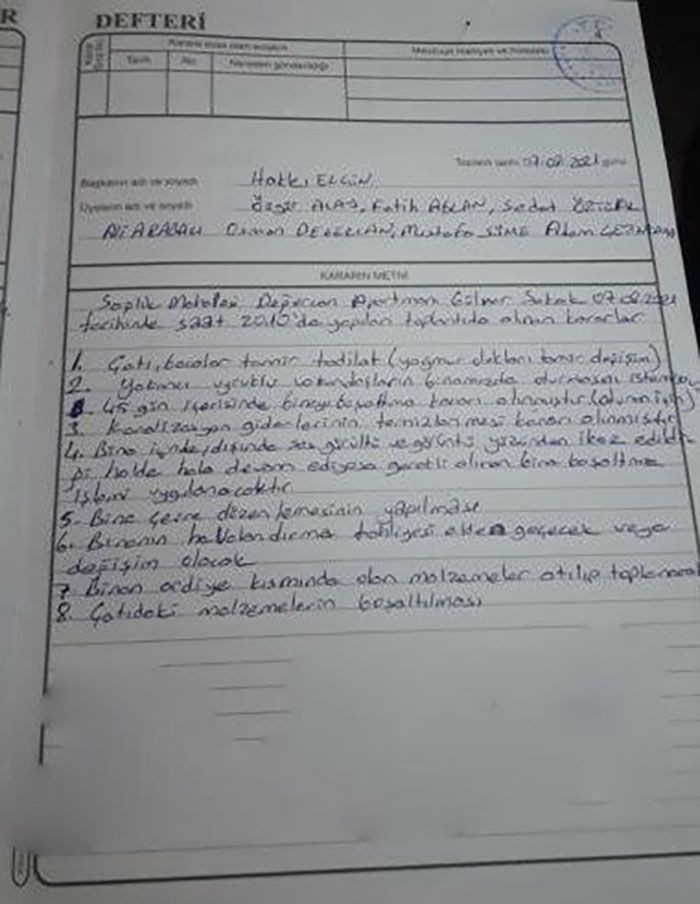 R
DEFTERİ
Tarih
No
Nereden gönderildiği
Toplantı tarihi 07.08.2021 günü
Başkanın adı ve soyadı Hakkı ELGİN
Üyelerin adı ve soyadı Özgür ALAŞ, Fatih ASLAN, Sedat
Osman Mustafa Adem
KARARIN METNİ
Sağlık Mahallesi Apartmanı Sokak 07.08.2021
tarihinde saat 2010'da yapılan toplantıda alınan kararlar
1. Çatı, bacalar tamir tadilat (yağmur olukları tamir değişim)
2. Yabancı uyruklu vatandaşların binamızda oturmasını
45 gün içerisinde binayı boşaltma kararı alınmıştır
3. Kanalizasyon giderlerinin temizlenmesi kararı alınmıştır
4. Bina içinde, dışında ses gürültü ve görüntü yüzünden ikaz edildi
ği halde hala devam ediyosa gerekli alınan bina boşaltma
işlemi uygulanacaktır
5. Bina çevre düzenlemesinin yapılması
6. Binanın havalandırma tahliyesi elden geçecek veya
değişim olacak
7. Binan ardiye kısmında olan malzemeler atılıp
8. Çatıdaki malzemelerin boşaltılması